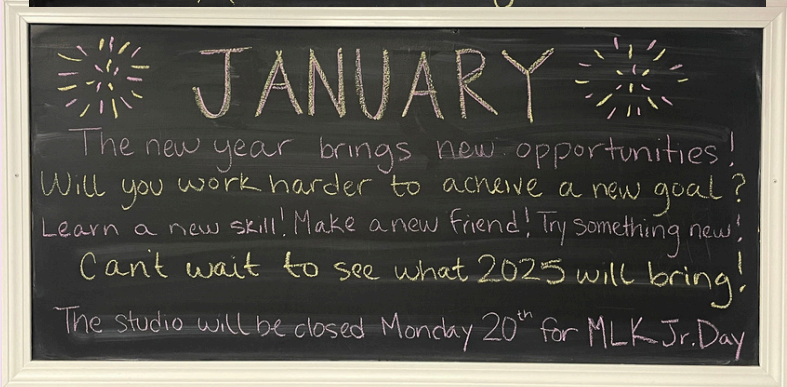 JANUARY
The new year brings new opportunities!
Will you work harder to acheive a new goal?
Learn a new skill! Make a new friend! Try something new!
Can't wait to see what 2025 will bring!
The studio will be closed Monday 20th for MLK Jr. Day